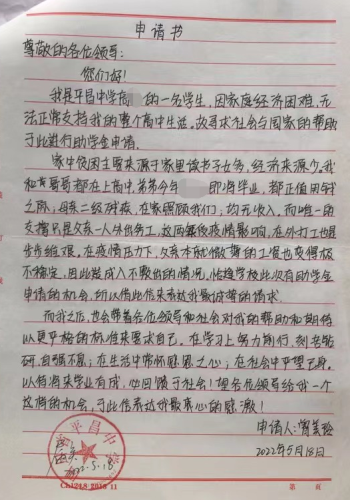 申请书
尊敬的各位领导:
您们好!
我是平昌中学高 的一名学生,因家庭经济困难,无
法正常支持我的整个高中生活。故寻求社会与国家的帮助
于此进行助学金申请.
家中贫困主要来源于家里读书子女多,经济来源少。我
和 哥哥都在上高中,弟弟今年 即将毕业,都正值用钱
之际,母亲二级残疾,在家照顾我们,均无收入。而唯一的
支撑只是父亲一人外出务工,
步步给艰。在疫情压力下,父亲本就微薄的工资也变得极
不稳定,因此造成入不敷出的情况,恰逢学校此次有助学金
申请的机会,所以借此信来表达我最诚挚的请求.
而我之后,也会带着各位领导和社会对我的帮助和期待
以更严格的标准来要求自己,在学习上努力前行,刻苦钻
研,自强不息;在生活中常怀感恩之心;在社会中严望己身。
以待将来学业有成,心回馈于社会!望各位领导给我一个
这样的机会,于此信表达我最衷心的感激!
申请人:
2022年5月18日
平昌中学
2022.5.18
第 页